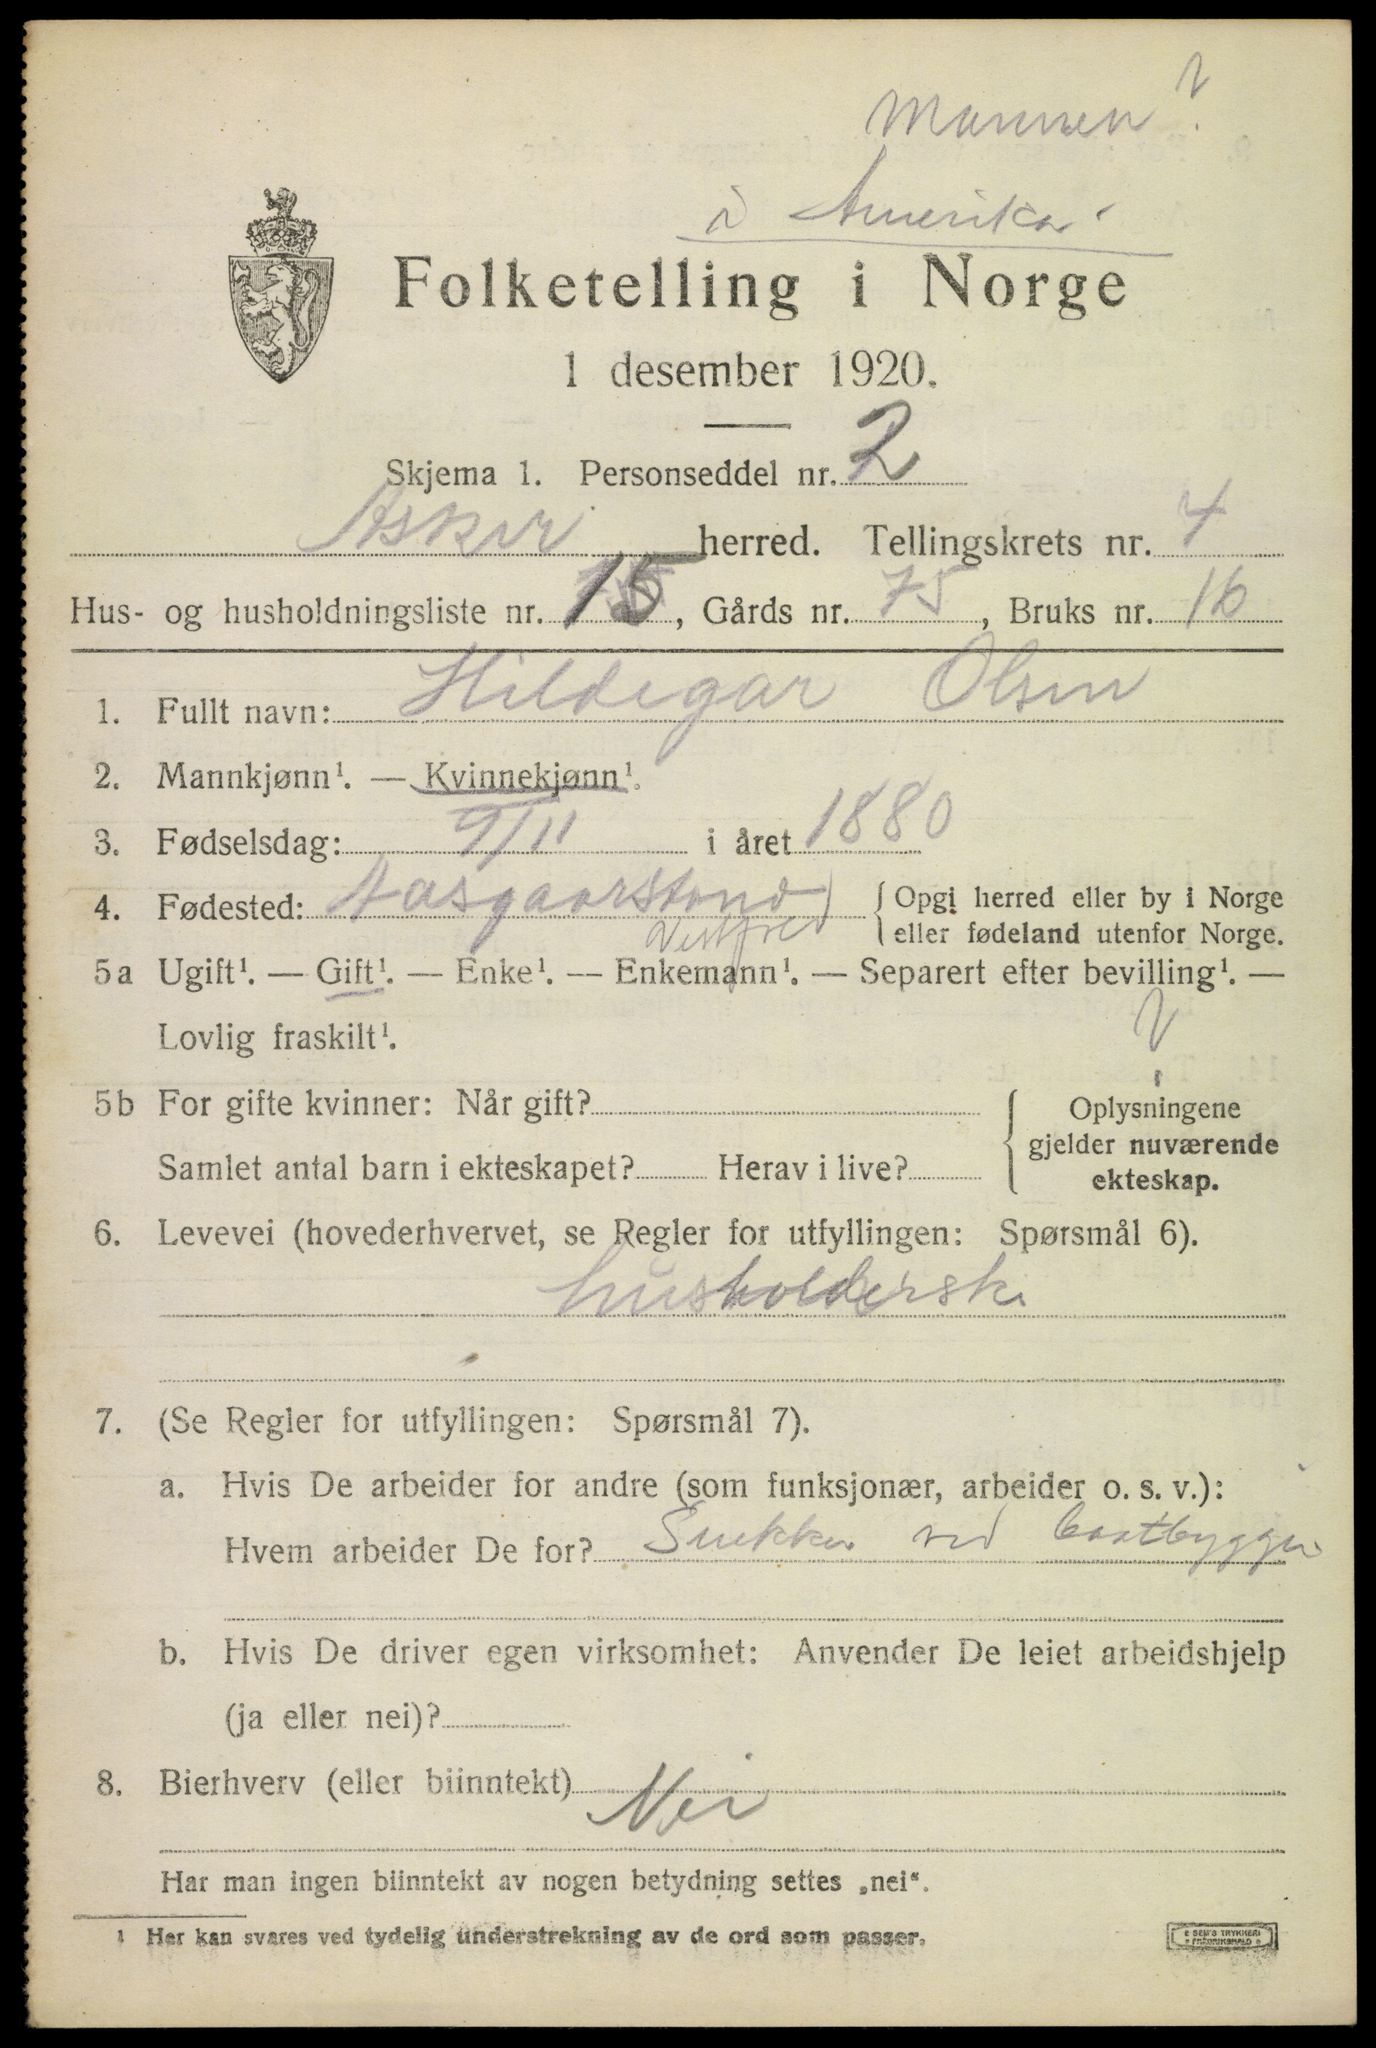 Mannen?
i Amerika
Folketelling i Norge
1 desember 1920.
Skjema 1. Personseddel nr. 2
Asker herred. Tellingskrets nr. 4
Hus- og husholdningsliste nr. 15, Gårds nr. 75, Bruks nr. 16
1. Fullt navn: Hildegar Olsen
2. Mannkjønn¹. — Kvinnekjønn¹.
3. Fødselsdag: 9/11 i året 1880
4. Fødested: Aasgaarstand { Opgi herred eller by i Norge
eller fødeland utenfor Norge.
Vestfold
5a Ugift¹. — Gift¹. — Enke¹. — Enkemann¹. — Separert efter bevilling¹. —
Lovlig fraskilt¹.
?
5b For gifte kvinner: Når gift? { Oplysningene
gjelder nuværende
Samlet antal barn i ekteskapet? Herav i live? ekteskap.
6. Levevei (hovederhvervet, se Regler for utfyllingen: Spørsmål 6).
husholderske
7. (Se Regler for utfyllingen: Spørsmål 7).
a. Hvis De arbeider for andre (som funksjonær, arbeider o. s. v.):
Hvem arbeider De for? Snekker ved baatbyggeri
b. Hvis De driver egen virksomhet: Anvender De leiet arbeidshjelp
(ja eller nei)?
8. Bierhverv (eller biinntekt) Nei
Har man ingen biinntekt av nogen betydning settes „nei“.
1 Her kan svares ved tydelig understrekning av de ord som passer.
E SEM'S TRYKKERI
FREDRIKSHALD